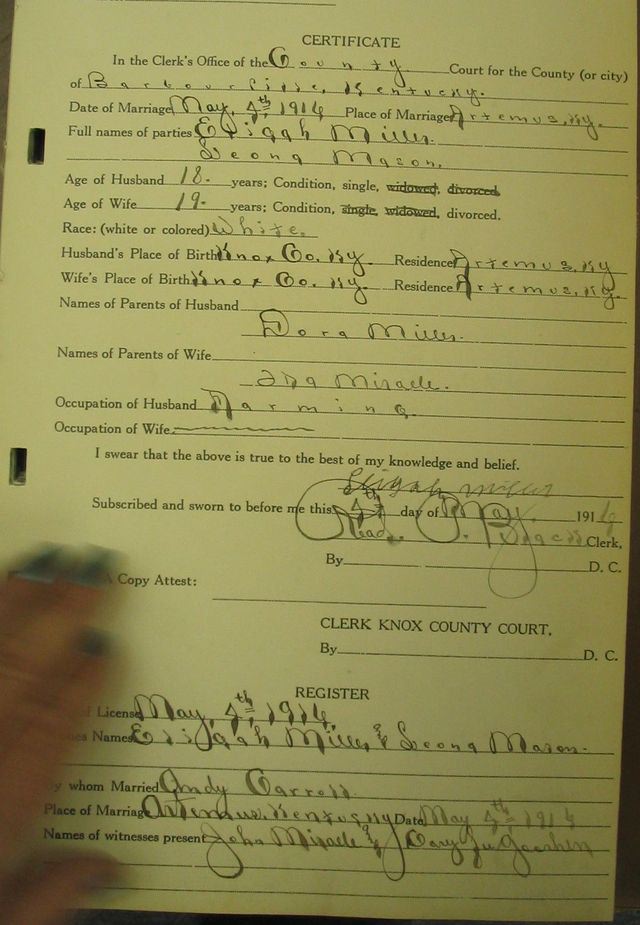 CERTIFICATE
In the Clerk's Office of the County Court for the County (or city)
of Barbourville, Kentucky.
Date of Marriage May, 4th, 1916 Place of Marriage Artemus, Ky.
Full names of parties Elijah Miller.
Leona Mason.
Age of Husband 18. years; Condition, single, widowed, divorced
Age of Wife 19. years; Condition, single, widowed, divorced.
Race: (white or colored) White.
Husband's Place of Birth Knox Co. Ky. Residence Artemus, Ky
Wife's Place of Birth Knox Co. Ky. Residence Artemus, Ky.
Names of Parents of Husband
Dora Miller.
Names of Parents of Wife
Miracle.
Occupation of Husband Farming
Occupation of Wife
I swear that the above is true to the best of my knowledge and belief.
Elijah Miller
Subscribed and sworn to before me this 4th day of May, 1916
Read P. Black Clerk,
By D. C.
A Copy Attest:
CLERK KNOX COUNTY COURT.
By D. C.
REGISTER
of License May, 4th, 1916.
Names Elijah Miller & Leona Mason.
by whom Married Andy Carroll.
Place of Marriage Artemus, Kentucky Date May 4th, 1916
Names of witnesses present John Miracle &